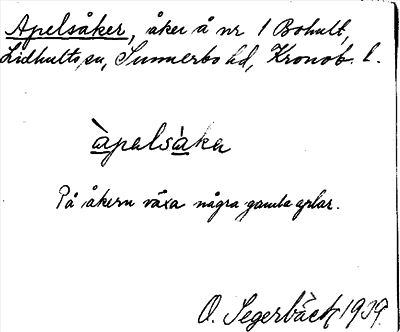 Apelsåker, åker å nr 1 Bohult,
Lidhults sn, Sunnerbo hd, Kronob. l.
àpelsàker
På åkern växa några gamla aplar.
O. Segerbäck 1939.